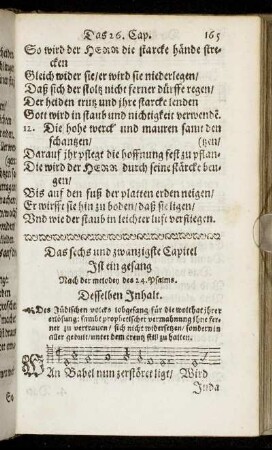 Das 26. Cap. 165
So wird der HERR die starcke hände stre-
cken
Gleich wider sie/ er wird sie niederlegen/
Daß sich der stoltz nicht ferner dürffe regen/
Der heiden trutz und ihre starcke lenden
Gott wird in staub und nichtigkeit verwendē.
12. Die hohe werck und mauren samt den
schantzen/ (tzen/
Darauf ihr pflegt die hoffnung fest zu pflan-
Die wird der HERR durch seine stärcke ben-
gen/
Bis auf den fuß der platten erden neigen/
Er wirfft sie hin zu boden/ daß sie ligen/
Und wie der staub in leichter luft verfliegen.
Das sechs und zwanzigste Capitel
Ist ein gesang
Nach der melodey des 24. Psalms.
Desselben Inhalt.
Des Jüdischen volcks lobgesang/ für die wolthat ihrer
erlösung: samt prophetischer vermahnung/ ihne fer-
ner zu vertrauen/ sich nicht widersetzen/ sondern in
aller gedult/ unter dem creutz still zu halten.
WAn Babel nun zerstöret ligt/ Wird
Juda